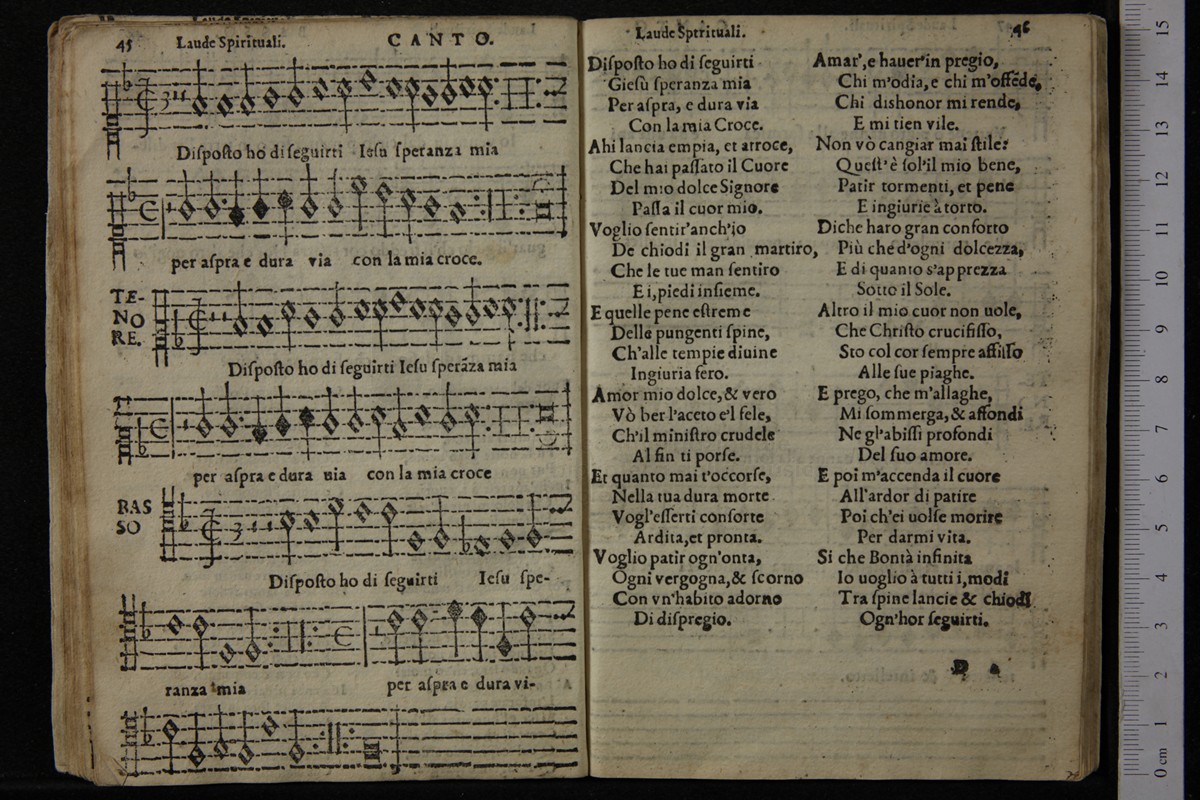 45 Laude Spirituali. CANTO.
Diſpoſto ho di ſeguirti Ieſu ſperanza mia
per aſpra e dura via con la mia croce.
TE-
NO
RE.
Diſpoſto ho di ſeguirti Ieſu ſperãza mia
per aſpra e dura uia con la mia croce
BAS
SO
Diſpoſto ho di ſeguirti Ieſu ſpe-
ranza mia per aſpra e dura vi-
Laude Spirituali. 46
Diſpoſto ho di ſeguirti
Gieſù ſperanza mia
Per aſpra, e dura via
Con la mia Croce.
Ahi lancia empia, et atroce,
Che hai paſſato il Cuore
Del mio dolce Signore
Paſſa il cuor mio.
Voglio ſentir'anch'io
De chiodi il gran martiro,
Che le tue man ſentiro
E i, piedi inſieme.
E quelle pene eſtreme
Delle pungenti ſpine,
Ch'alle tempie diuine
Ingiuria fero.
Amor mio dolce, & vero
Vò ber l'aceto e'l fele,
Ch'il miniſtro crudele
Al fin ti porſe.
Et quanto mai t'occorſe,
Nella tua dura morte
Vogl'eſſerti conſorte
Ardita, et pronta.
Voglio patir ogn'onta,
Ogni vergogna, & ſcorno
Con vn'habito adorno
Di diſpregio.
Amar', e hauer'in pregio,
Chi m'odia, e chi m'offẽde,
Chi dishonor mi rende,
E mi tien vile.
Non vò cangiar mai ſtile:
Queſt'è ſol'il mio bene,
Patir tormenti, et pene
E ingiurie à torto.
Di che haro gran conforto
Più che d'ogni dolcezza,
E di quanto s'apprezza
Sotto il Sole.
Altro il mio cuor non uole,
Che Chriſto crucifiſſo,
Sto col cor ſempre affiſſo
Alle ſue piaghe.
E prego, che m'allaghe,
Mi ſommerga, & affondi
Ne gl'abiſſi profondi
Del ſuo amore.
E poi m'accenda il cuore
All'ardor di patire
Poi ch'ei uolſe morire
Per darmi vita.
Si che Bontà infinita
Io uoglio à tutti i, modi
Tra ſpine lancie & chiodi
Ogn'hor ſeguirti.
15
14
13
12
11
10
9
8
7
6
5
4
3
2
1
0 cm